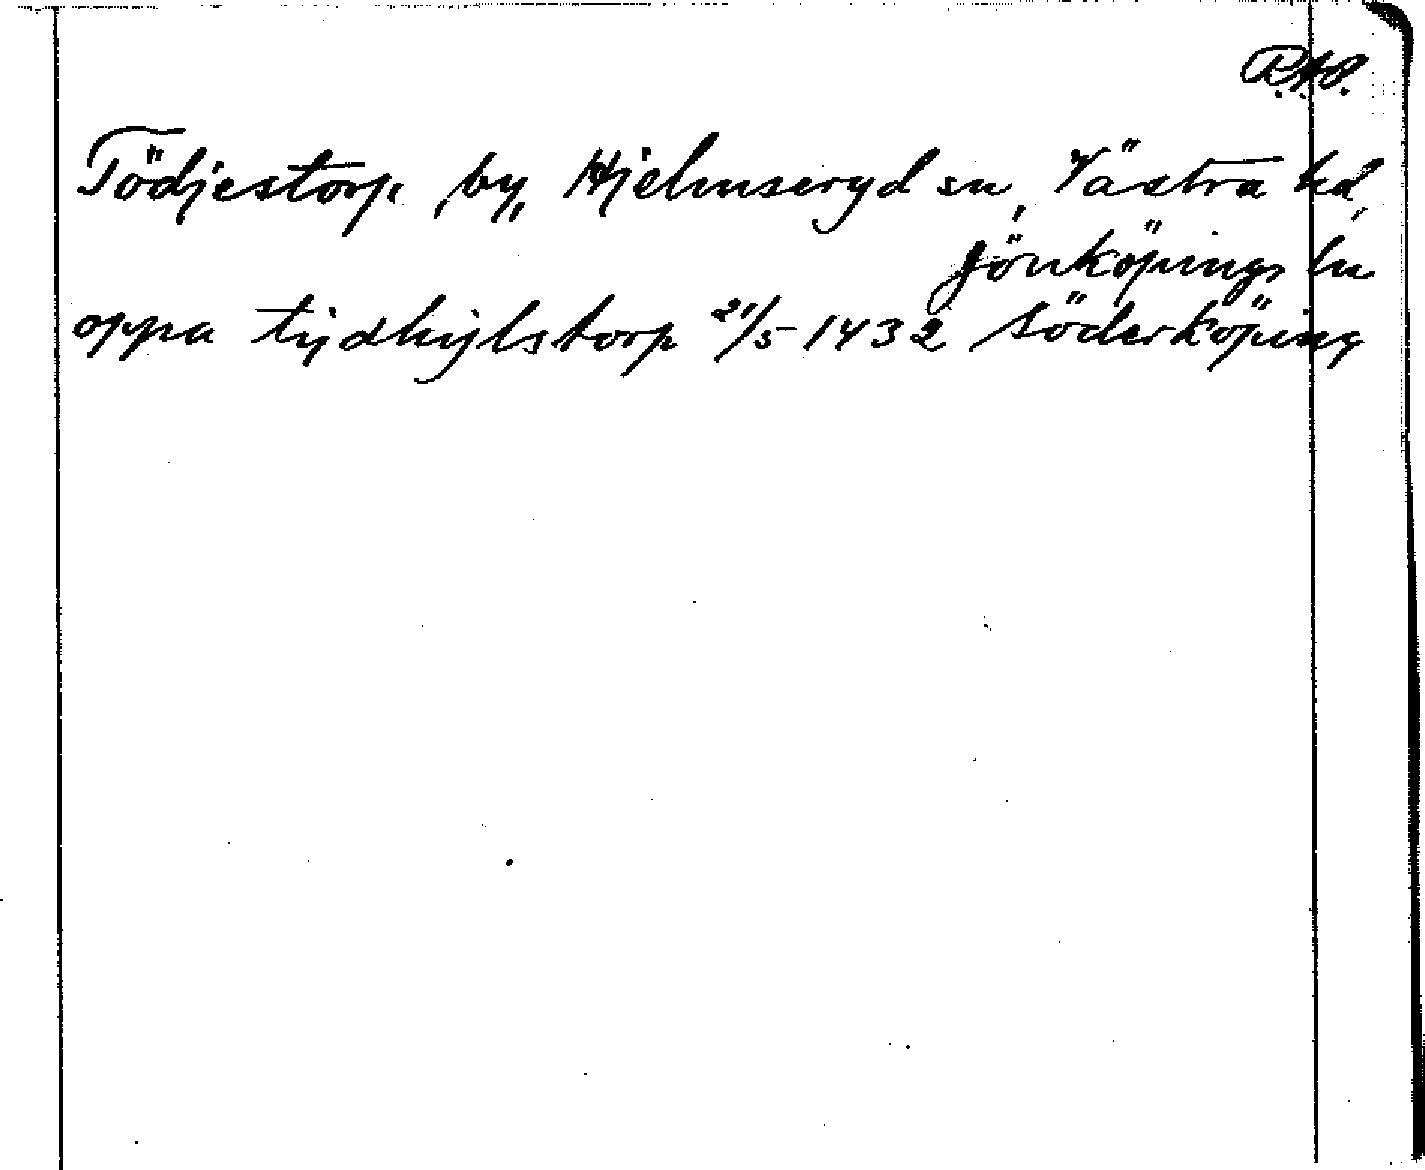 R.A.P.
Tödjestorp, by, Hjelmseryd sn, Västra hd,
Jönköpings ln
oppa tijdhijlstorp 21/5 1432 Söderköping